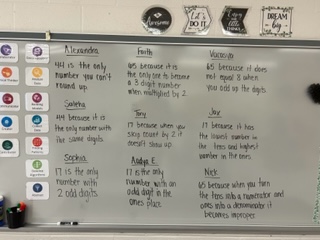 Awesome
Let's
DO IT
DREAM
big
Alexandra
44 is the only
number you can't
round up
Faith
65 because it is
the only one to become
a 3 digit number
when multiplied by 2
65 because it does
not equal 8 when
you add up the digits.
44 because it is
the only number with
the same digits.
Tony
17 because when you
skip count by 2 it
doesn't show up
Jax
17 because it has
the lowest number in
the tens and highest
number in the ones.
Sophia
17 is the only
number with
2 odd digits
Aadya E.
17 is the only
number with an
odd digit in the
ones place
Nick
65 because when you turn
the tens into a numerator and
ones into a denominator it
becomes improper.